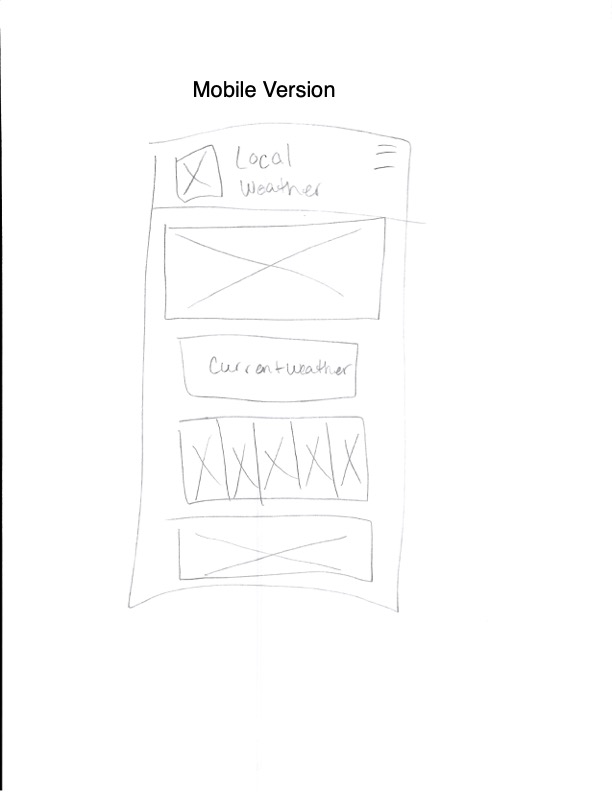 Mobile Version
Local
Weather
Current weather